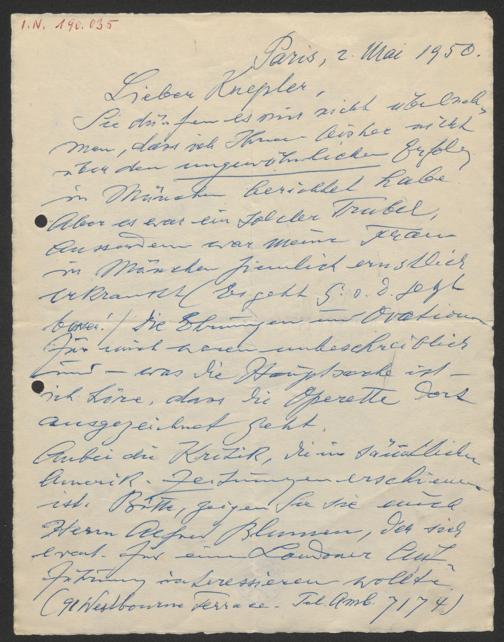 I.N. 190.035
Paris, 2. Mai 1950.
Lieber Knepler,
Sie dürfen es mir nicht übelneh-
men, dass ich Ihnen bisher nicht
über den ungewöhnlichen Erfolg
in München berichtet habe
Aber es war ein solcher Trubel,
ausserdem war meine Frau
in München ziemlich ernstlich
erkrankt (Es geht G. s. d. jetzt
besser!) Die Ehrungen und Ovationen
für mich waren unbeschreiblich
und – was die Hauptsache ist –
ich höre, dass die Operette dort
ausgezeichnet geht.
Anbei die Kritik, die in sämtlichen
Amerik. Zeitungen erschienen
ist. Bitte, zeigen Sie sie auch
Herrn Blumen, der sich
event. für eine Londoner Auf-
führung interessieren wollte
(91 Westbourne Terrace. Tel. Amb. 7174)